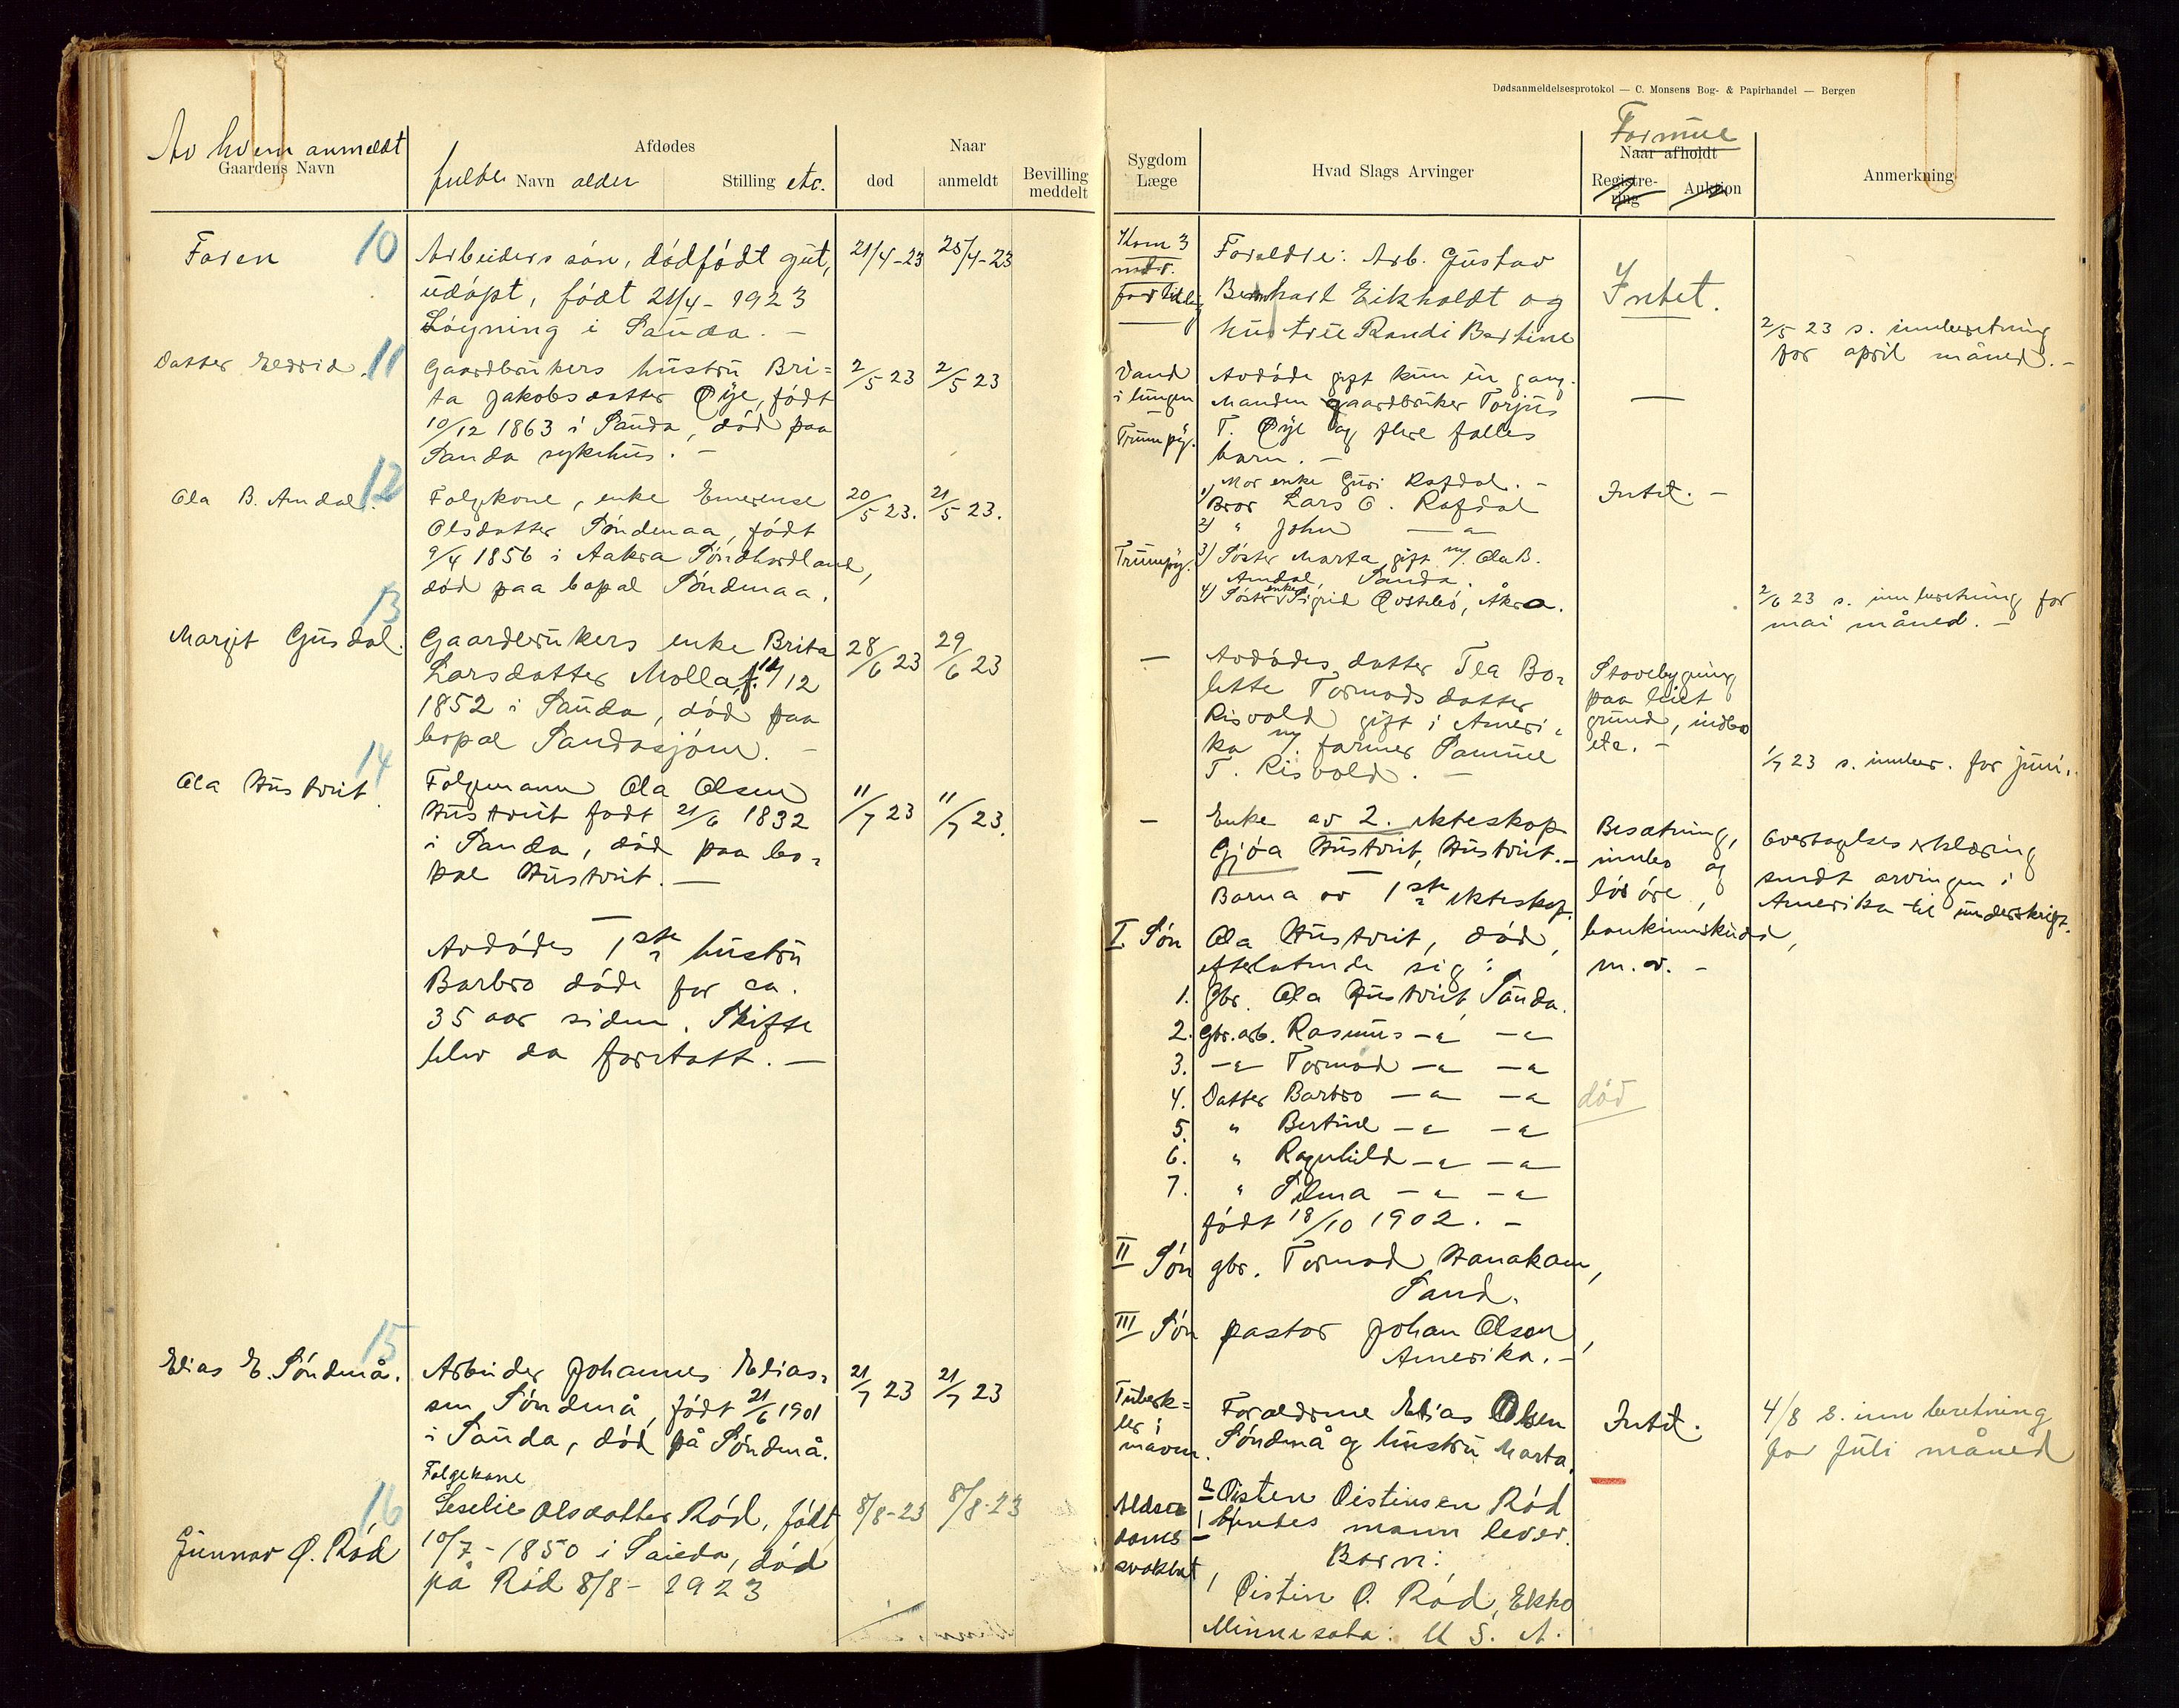 Dødsanmeldelsesprotokol — C. Monsens Bog- & Papirhandel — Bergen
Av hvem anmeldt
Gaardens Navn
Afdødes
fulde Navn alder Stilling etc.
Naar
død anmeldt
Bevilling
meddelt
Sygdom
Læge
Hvad Slags Arvinger
Formue
Naar afholdt
Registre-
ring
Auktion
Anmerkning
Faren 10
Arbeiders søn, dødfødt gut,
udøpt, født 21/4 - 1923
Løgning i Sauda. -
21/4-23 25/4-23
Kom 3
mdr.
for tidlig
Forældre: Arb. Gustav
Bernhart Eikholdt og
hustru Randi Bertine
Intet.
2/5 23 s. innberetning
for april måned. -
Datter Eldrid. 11
Gaardbrukers hustru Bri=
ta Jakobsdatter Øye, født
10/12 1863 i Sauda, død paa
Sauda sykehus. -
2/5 23 2/5 23
Vand
i lungen
Trumpy.
Avdøde gift kun en gang.
Manden gaardbruker Torjus
T. Øye og flere fælles
barn. -
—
Ola B. Amdal. 12
Folgekone, enke Emerense
Olsdatter Søndenaa, født
9/4 1856 i Aakra Søndhordland,
død paa bopæl Søndenaa.
20/5 23. 21/5 23.
Trumpy.
1) Mor enke Guri Rafdal. -
Bror Lars O. Rafdal
2) " John — a
3) Søster Marta, gift m/ Ola B.
Amdal, Sauda.
4) Søster enke Sigrid Østebø, Åkra.
Intet. -
2/6 23 s. innberetning for
mai måned. -
13
Margit Gusdal.
Gaardbrukers enke Brita
Larsdatter Molla f. 14/12
1852 i Sauda, død paa
bopæl Saudasjøen. -
28/6 23 29/6 23
—
Avdødes datter Tea Bo=
lette Tormodsdatter
Risvold gift i Ameri=
ka m/ farmer Samuel
T. Risvold. -
Stovebygning
paa leiet
grund, indbo
etc. -
1/7 23 s. innber. for juni.
14
Ola Hustveit.
Folgemann Ola Olsen
Hustveit født 21/6 1832
i Sauda, død paa bo=
pæl Hustveit. —
11/7 23 11/7 23.
—
Enke av 2. ekteskap
Gjøa Hustveit, Hustveit. -
Barna av 1ste ekteskap.
Besætning,
innbo og
løsøre,
bankinnskudd,
m.v. -
Overtagelseserklæring
sendt arvingen i
Amerika til underskrift.
Avdødes 1ste hustru
Barbro døde for ca.
35 aar siden. Skifte
blev da foretatt. —
I Søn Ola Hustveit, død,
efterlatende sig:
1. Gbr. Ola Hustveit, Sauda.
2. Gbr.arb. Rasmus — a — a
3. — a — Tormod — a — a
4. Datter Barbro — a — a død
5. " Bertine — a — a
6. " Ragnhild — a — a
7. " Selma — a — a
født 18/10 1902. -
II Søn gbr. Tormod Hanakam,
Sand.
III Søn pastor Johan Olson,
Amerika. -
15
Elias E. Søndenå.
Arbeider Johannes Elias=
sen Søndenå, født 21/6 1901
i Sauda, død på Søndenå.
21/7 23 21/7 23
Tuberk=
ler i
maven.
Forældrene Elias Olsen
Søndenå og hustru Marta.
Intet.
4/8 s. innberetning
for juli måned
16
Gunnar Ø. Rød
Folgekone
Seselie Olsdatter Rød, født
10/7 - 1850 i Sauda, død
på Rød 8/8 - 1923
8/8-23 8/8-23
Alder=
doms=
svakhet
Øisten Øistinsen Rød
hendes mann lever.
Barn:
1 Øistin Ø. Rød, Ekko
Minnesota. U. S. A.